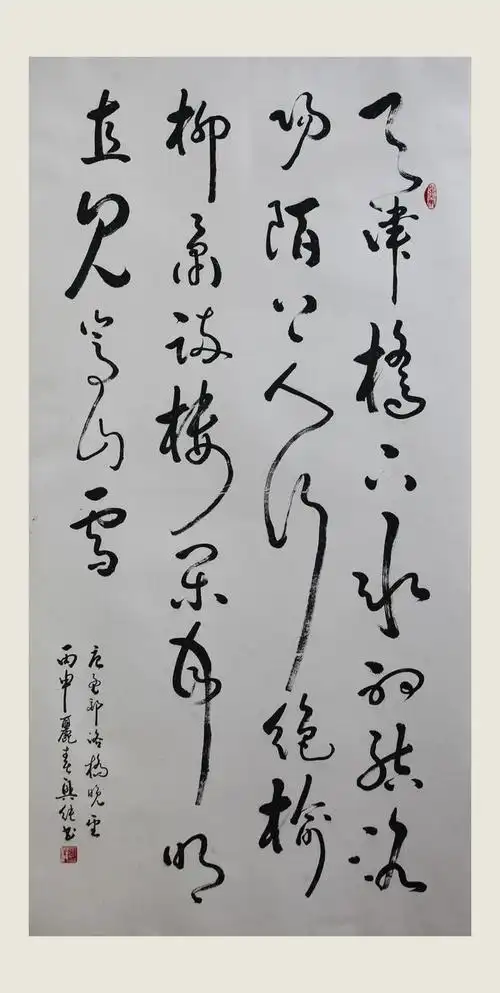 天津橋下冰初結洛
陽陌上人行絕榆
柳蕭疏樓閑月明
直見嵩山雪
唐孟郊洛橋晚望
丙申麗春興純書